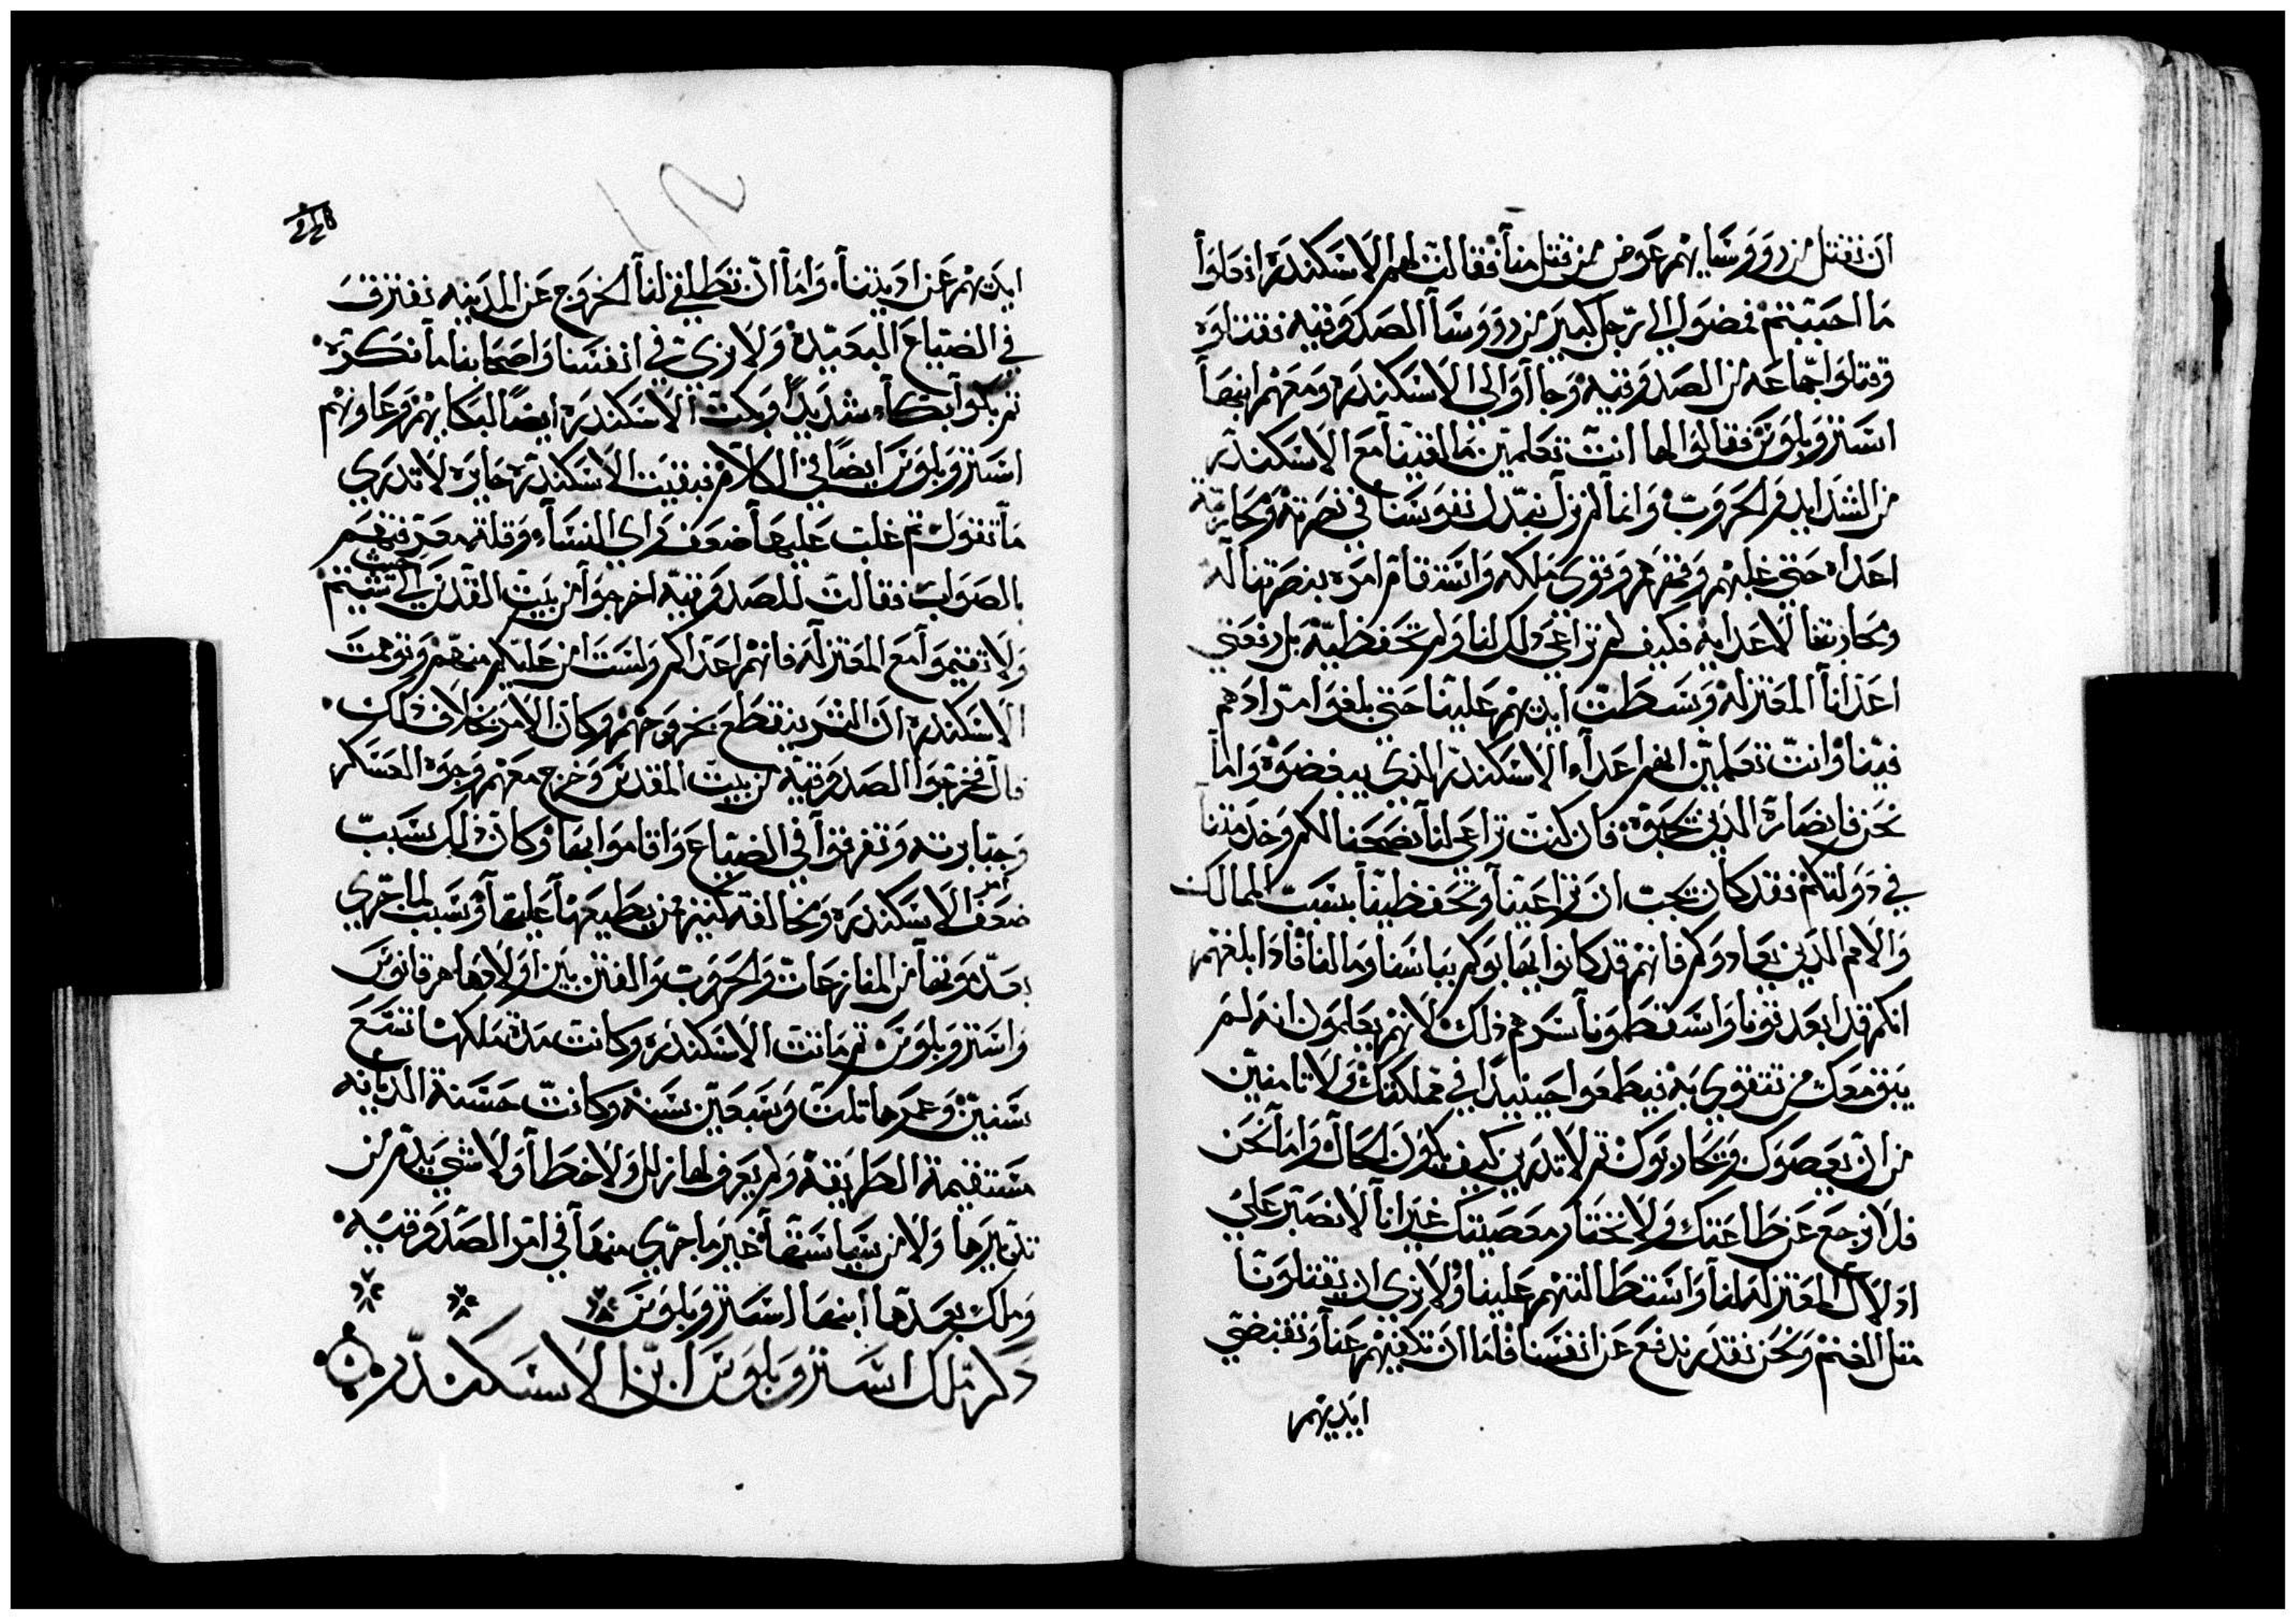 ان نقتل من روووسايهم عوض من قتل منا فقالت لهم الاسكندره افعلوا
ما احببتم فمضوا الي رجل كبير من روووسآ الصدوقيه فقتلوه
وقتلوا جماعه من الصدوقيه وجاآوا الي الاسكندره ومعهم ابنها
استروبلوس فقالوا لها انت تعلمين ما لقينا مع الاسكندر
من الشدايد والحروب وانما لم نزل نبدل نفوسنا في نصرته ومحاربة
اعداه حتي غلبهم وقهرهم وقوي ملكه واستقام امره بنصرتنا له
ومحاربتنا لاعدايه فكيف لم تراعي ذلك لنا ولم تحفظيه بل رفعتي
اعدانا المعتزله وبسطت ايديهم علينا حتي بلغوا مرادهم
فينا وانت تعلمين انهم اعداء الاسكندر الذي يبغضوه واما
نحن فانصاره الذين نحبوه فان كنت تراعي لنا نصحنا لكم وخدمتنا
في دولتكم فقد كان يجب ان تراعينا وتحفظينا بسبب الممالك
والامم الذين يعادوكم فانهم قد كانوا يهابوكم بباسنا وما لنا فاذا بلغهم
انكم قد ابعدتونا واسقطتونا سرهم ذلك لانهم يعلمون انه لم
يبق معك من تتقوي به فيطمعوا حينيذ في مملكتك ولا تامنين
من ان يعصوك ويحاربوك ثم لا تدرين كيف يكون الحال واما نحن
فلا نرجع عن طاعتك ولا نختار معصيتك غير انا لا نصبر علي
اذلال المعتزله لنا واستطالتهم علينا ولا نري ان يقتلونا
مثل الغنم ونحن نقدر ندفع عن انفسنا فاما ان تكفيهم عنا وتقبضي
ايديهم
ايديهم عن اديتنا واما ان تطلقي لنا الخروج عن المدينه نفترق
في الضياع البعيدة ولا نري في انفسنا واصحابنا ما نكره
ثم بكوا بكاء شديدًا وبكت الاسكندره ايضًا لبكايهم وعاونهم
استروبلوس ايضًا في الكلام فبقيت الاسكندره حايره لا تدري
ما تقول ثم غلب عليها ضعف راي النساء وقلة معرفتهم
بالصواب فقالت للصدوقيه اخرجوا من بيت القدس الي حيث شيتم
ولا تقيموا مع المعتزله فانهم اعداكم ولست امن عليكم منهم وتوهمت
الاسكندره ان الشر ينقطع بخروجهم وكان الامر بخلاف ذلك
قال فخرجوا الصدوقيه من بيت المقدس وخرج معهم وجوه العسكر
وجبابرته وتفرقوا في الضياع واقاموا بها وكان ذلك سبب
ضعف امر الاسكندره ومخالفة كثير من يطيعها عليها وسبب لما جري
بعد موتها من المنازعات والحروب والفتن بين اولادها هرقانوس
واستروبلوس ثم ماتت الاسكندره وكانت مدة ملكها تسع
سنين وعمرها ثلث وسبعين سنه وكانت حسنة الديانه
مستقيمة الطريقه ولم يعرف لها زلل ولا خطا ولا شي يذم من
تدبيرها ولا من سياستها خير ما جري منها في امر الصدوقيه
وملك بعدها ابنها استروبلوس
ذكر ملك استروبلوس ابن الاسكندر